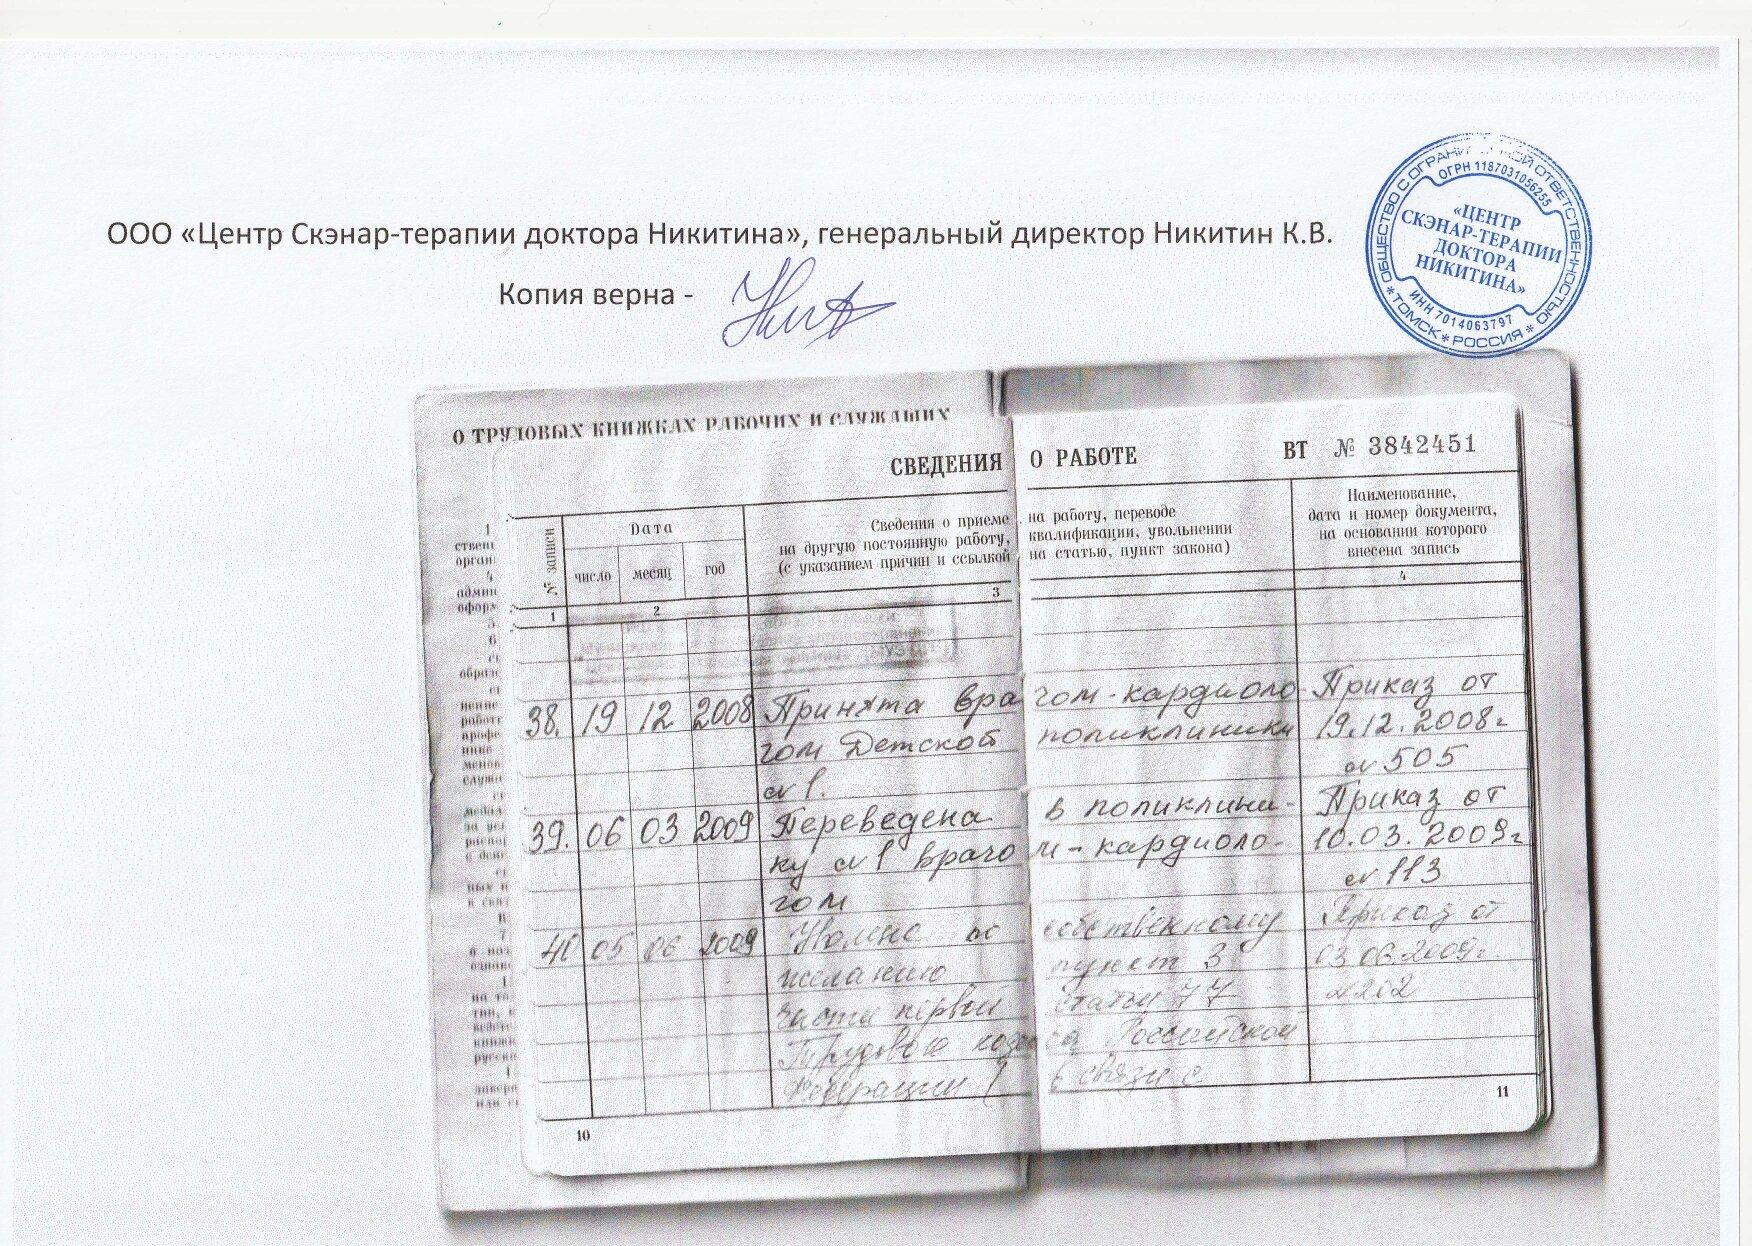 ООО «Центр Скэнар-терапии доктора Никитина», генеральный директор Никитин К.В.
Копия верна -
ОБЩЕСТВО С ОГРАНИ ОЙ ОТВЕТСТВЕННОСТЬЮ
ОГРН 1187031056255
«ЦЕНТР
СКЭНАР-ТЕРАПИИ
ДОКТОРА
НИКИТИНА»
ИНН 7014063797
* ТОМСК * РОССИЯ *
О ТРУДОВЫХ КНИЖКАХ РАБОЧИХ И СЛУЖАЩИХ
СВЕДЕНИЯ О РАБОТЕ ВТ № 3842451
№ записи
Дата
число месяц год
Сведения о приеме на работу, переводе
на другую постоянную работу, квалификации, увольнении
(с указанием причин и ссылкой на статью, пункт закона)
Наименование,
дата и номер документа,
на основании которого
внесена запись
1 2 3 4
38. 19 12 2008 Принята врачом-кардиоло- Приказ от
гом Детской поликлиники 19.12.2008г
№1. №505
39. 06 03 2009 Переведена в поликлини- Приказ от
ку №1 врачом-кардиоло- 10.03.2009г
гом №113
40 05 06 2009 по собственному Приказ от
желанию пункт 3 03.06.2009г.
части первой статьи 77 №202
Трудового кодекса Российской
Федерации в связи с
10
11